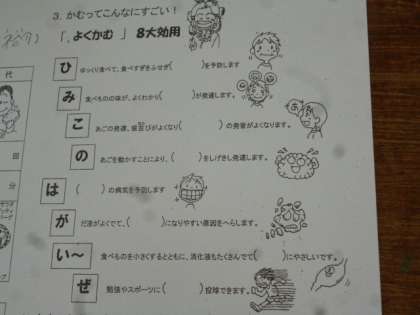 3. かむってこんなにすごい！
「、よくかむ 」 8大効用
ひ ゆっくり食べて、食べすぎをふせぎ( )を予防します
み 食べものの味が、よくわかり( )が発達します。
こ あごの発達、歯並びがよくなり( )の発音がよくなります。
の あごを動かすことにより、( )をしげきし発達します。
は ( )の病気を予防します
が だ液がよくでて、( )になりやすい原因をへらします。
い〜 食べものを小さくするとともに、消化液もたくさんでて( )にやさしいです。
ぜ 勉強やスポーツに( )投球できます。
代
田
分